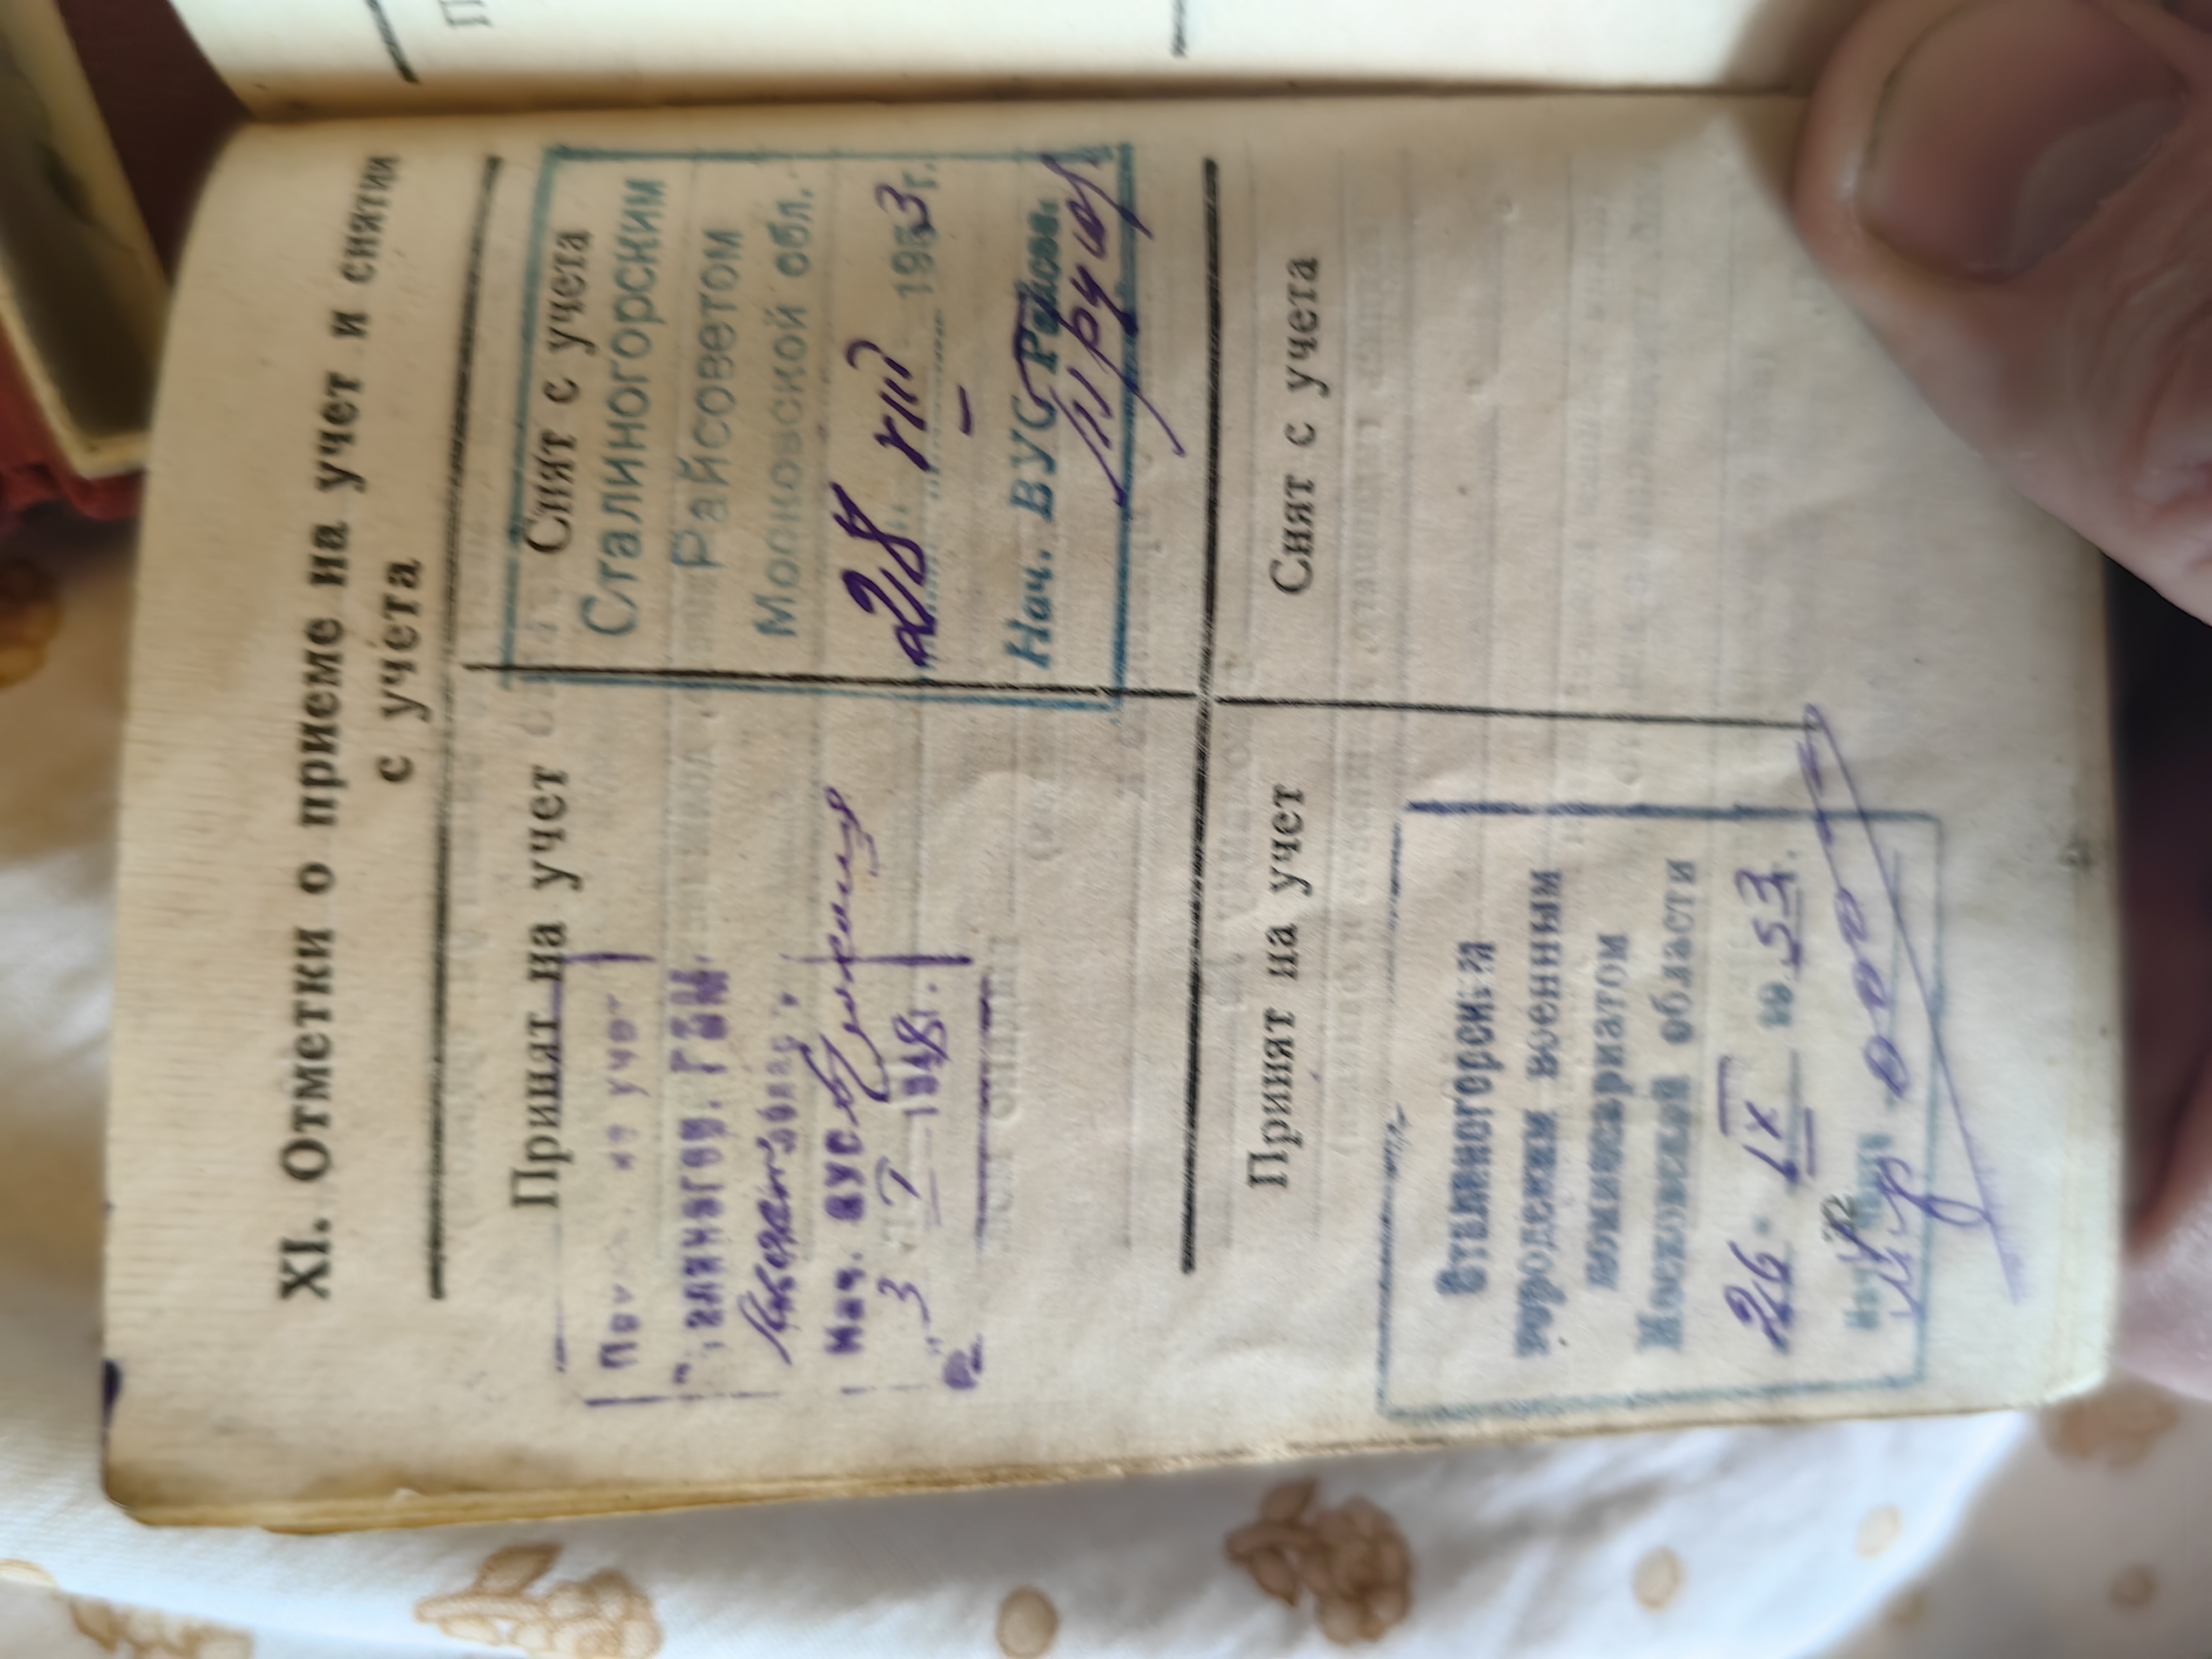 XI. Отметки о приеме на учет и снятии
с учета
Принят на учет
на учет
Нач. ВУС
"3" V 1948г.
Снят с учета
Сталиногорским
Райсоветом
Московской обл.
28 VIII 1953г.
Нач. ВУС Райсов.
Принят на учет
Сталиногорским
городским военным
комиссариатом
Московской области
26 IX 1953г.
Снят с учета